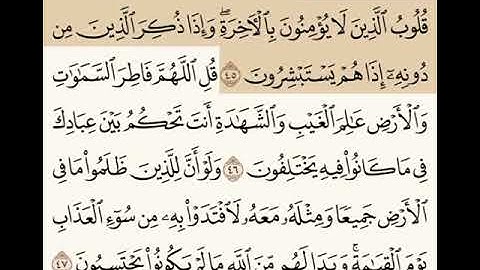 قُلُوبُ ٱلَّذِينَ لَا يُؤْمِنُونَ بِٱلْـَٔاخِرَةِۖ وَإِذَا ذُكِرَ ٱلَّذِينَ مِن
دُونِهِۦٓ إِذَا هُمْ يَسْتَبْشِرُونَ ٤٥ قُلِ ٱللَّهُمَّ فَاطِرَ ٱلسَّمَٰوَٰتِ
وَٱلْأَرْضِ عَٰلِمَ ٱلْغَيْبِ وَٱلشَّهَٰدَةِ أَنتَ تَحْكُمُ بَيْنَ عِبَادِكَ
فِي مَا كَانُوا۟ فِيهِ يَخْتَلِفُونَ ٤٦ وَلَوْ أَنَّ لِلَّذِينَ ظَلَمُوا۟ مَا فِي
ٱلْأَرْضِ جَمِيعًا وَمِثْلَهُۥ مَعَهُۥ لَٱفْتَدَوْا۟ بِهِۦ مِن سُوٓءِ ٱلْعَذَابِ
يَوْمَ ٱلْقِيَٰمَةِۚ وَبَدَا لَهُم مِّنَ ٱللَّهِ مَا لَمْ يَكُونُوا۟ يَحْتَسِبُونَ ٤٧